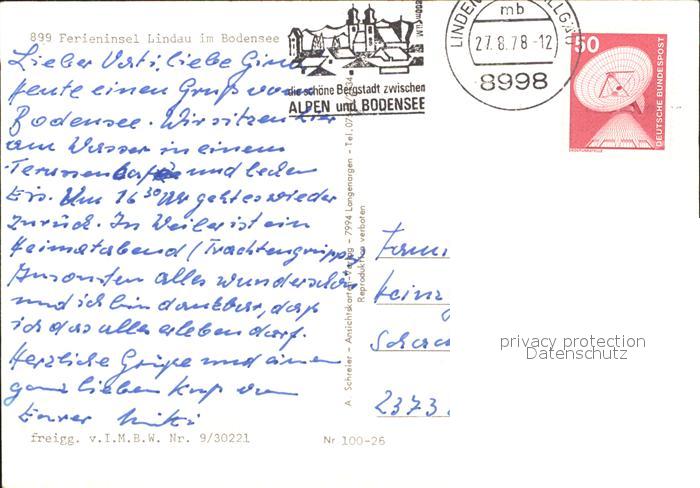 899 Ferieninsel Lindau im Bodensee
Lieber Vati, liebe
heute einen Gruß vom
Bodensee. Wir sitzen hier
am Wasser in einem
Terassencafe und lecken
Eis. Um 16 30 Uhr geht es wieder
zurück. In Weiler ist ein
Heimatabend (Trachtengruppe)
Ansonsten alles wunderschön
und ich bin dankbar, daß
ich das alles erleben darf.
Herzliche Grüße und einen
ganz lieben Kuß von
Eurer
freigg. v.I.M.B.W. Nr. 9/30221
Nr 100-26
die schöne Bergstadt zwischen
ALPEN und BODENSEE
mb
27.8.78-12
8998
50
DEUTSCHE BUNDESPOST
A. Schreier - Ansichtskarten-Verlag - 7994 Langenargen - Tel.
Reproduktion verboten
Fami
Heinz
2373
privacy protection
Datenschutz